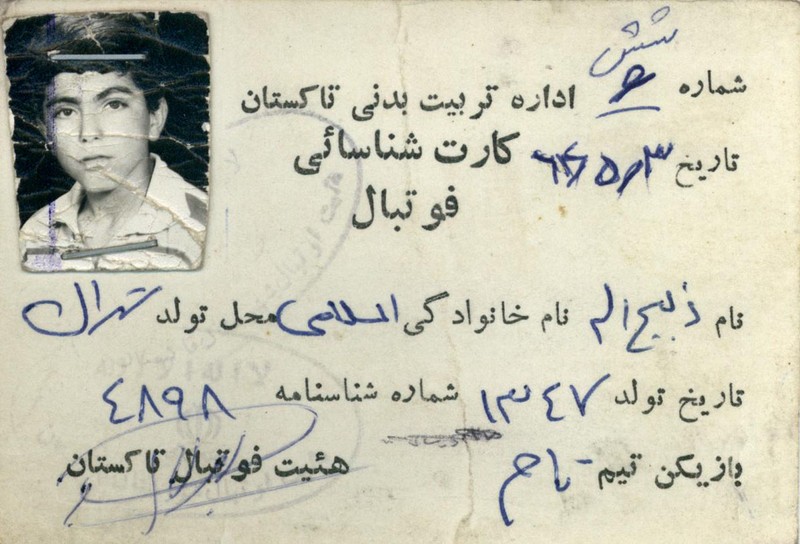 شماره ۶ شش
اداره تربیت بدنی تاکستان
تاریخ ۶۴/۵/۳
کارت شناسائی
فوتبال
نام ذبیح اله نام خانوادگی اسلامی محل تولد تهران
تاریخ تولد ۱۳۴۷ شماره شناسنامه ۴۸۹۸
بازیکن تیم هئیت فوتبال تاکستان